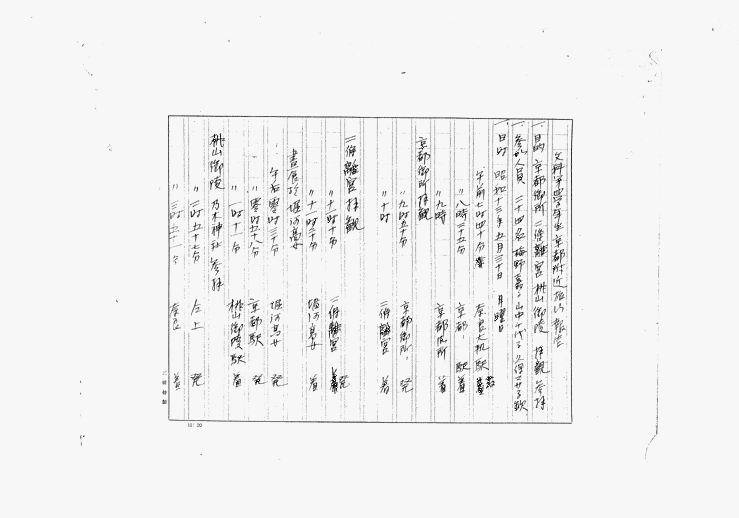 文科第四学年生京都附近旅行報告
一、目的 京都御所 二條離宮 桃山御陵 拝観 参拝
一、参加人員 二十四名 梅野嘉子 山中千代子 久保 子欠
一、日時 昭和十三年五月三十日 月曜日
午前七時四十分 奈良大軌駅
〃八時三十五分 京都駅着
〃九時 京都御所着
京都御所拝観
〃九時五十分 京都御所発
〃十時 二條離宮着
二條離宮拝観
〃十一時十分 二條離宮発
〃十一時三十分 堀河高女着
昼食於堀河高女
午后零時三十分 堀河高女発
〃零時五十八分 京都駅発
〃一時十一分 桃山御陵駅着
桃山御陵 乃木神社参拝
〃二時五十七分 仝上 発
〃三時五十 分 奈良 着
10×20